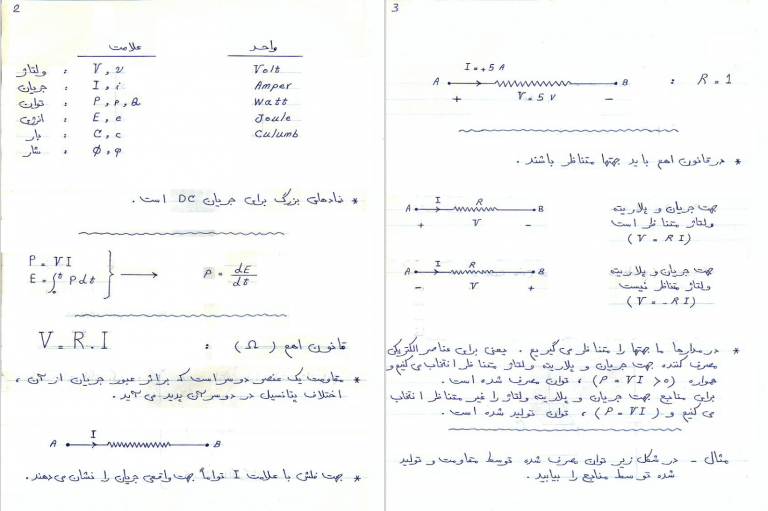 2
علامت واحد
ولتاژ : V , v Volt
جریان : I , i Amper
توان : P , p , Q Watt
انرژی : E , e Joule
بار : C , c Culumb
شار : Φ , φ
* نمادهای بزرگ برای جریان DC است .
P = VI
E = ∫₀ᵗ P dt → p = dE/dt
قانون اهم (Ω) : V = R . I
* مقاومت یک عنصر دوسر است که براثر عبور جریان از آن ,
اختلاف پتانسیل در دوسر آن پدید می آید .
A I B
* جهت فلش با علامت I تواماً جهت واقعی جریان را نشان می دهند .
3
I = +5 A
A B : R = 1
+ V = 5 V −
* در قانون اهم باید جهتها متناظر باشند .
A I R B
+ V −
جهت جریان و پلاریته
ولتاژ متناظر است
(V = RI)
A I R B
− V +
جهت جریان و پلاریته
ولتاژ متناظر نیست
(V = −RI)
* در مدارها ما جهتها را متناظر می گیریم . یعنی برای عناصر الکتریکی
مصرف کننده جهت جریان و پلاریته ولتاژ متناظر انتخاب می کنیم و
همواره (P = VI > 0) , توان مصرف شده است .
برای منابع جهت جریان و پلاریته ولتاژ را غیر متناظر انتخاب
می کنیم و (P = VI) , توان تولید شده است .
مثال - در شکل زیر توان مصرف شده توسط مقاومت و تولید
شده توسط منابع را بیابید .